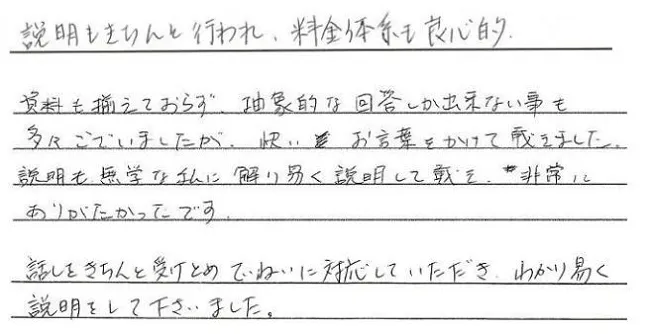 説明もきちんと行われ、料金体系も良心的.
資料も揃えておらず、抽象的な回答しか出来ない事も
多々ございましたが、快い お言葉をかけて戴きました.
説明も無学な私に解り易く説明して戴き、非常に
ありがたかったです.
話しをきちんと受けとめ ていねいに対応していただき、わかり易く
説明をして下さいました。